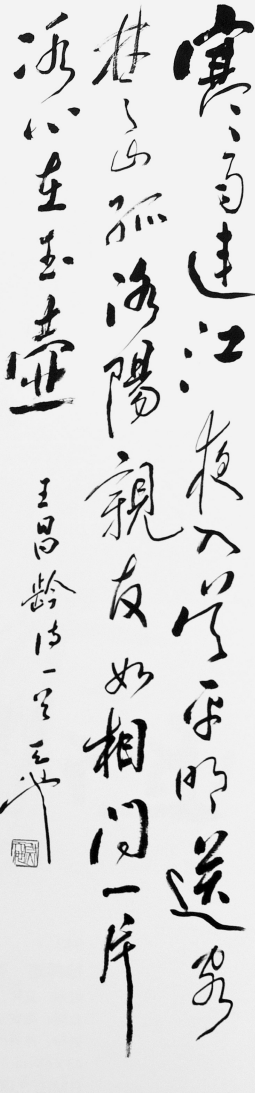 寒雨連江夜入吳平明送客
楚山孤洛陽親友如相問一片
冰心在玉壺
王昌齡詩一首